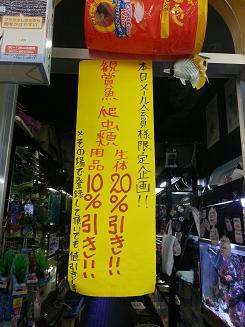 本日メール会員様限定企画!!
観賞魚・爬虫類
生体20%引きし!!
用品10%引きし!!
※その場で登録して頂いても値引きします